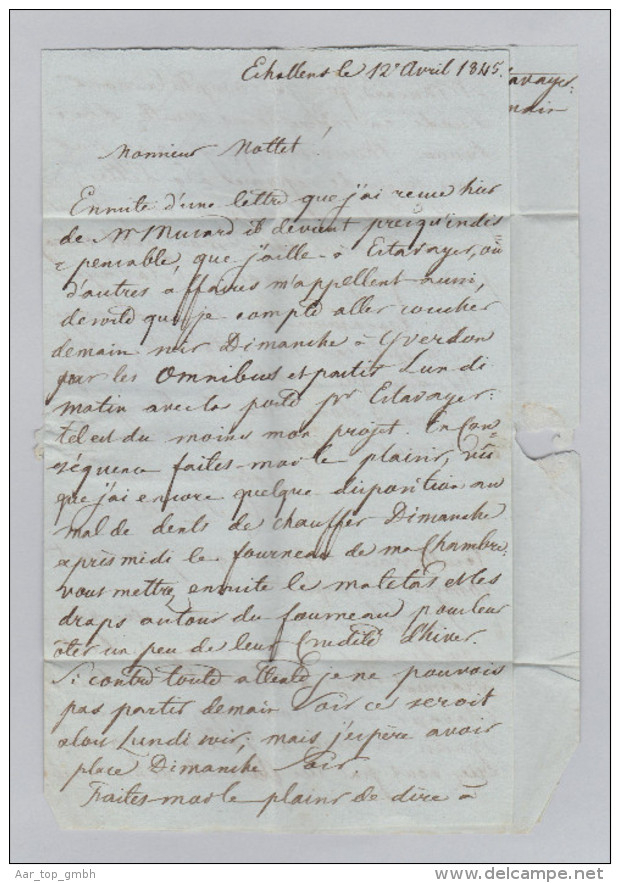 Echallens le 12e Avril 1845.
tavayer
Monsieur Nottet !
Ensuite d'une lettre que j'ai reçue hier
de Mr Musard il devient presqu'indis
pensable, que j'aille à Estavayer, où
d'autres affaires m'appellent aussi,
de sorte que je compte aller coucher
demain soir Dimanche à Yverdon
par les Omnibus et partir Lundi
matin avec la poste pr Estavayer:
tel est du moins mon projet. En Con=
séquence faites-moi le plaisir, vu
que j'ai encore quelque disposition au
mal de dents de chauffer Dimanche
après midi le fourneau de ma Chambre,
vous mettrez ensuite le matelas et les
draps autour du fourneau pour leur
ôter un peu de leur Crudité d'hiver.
Si contre toute attente je ne pouvois
pas partir demain soir ce seroit
alors Lundi soir, mais j'espère avoir
place Dimanche soir
Faites-moi le plaisir de dire à
Aar_top_gmbh
www.delcampe.net